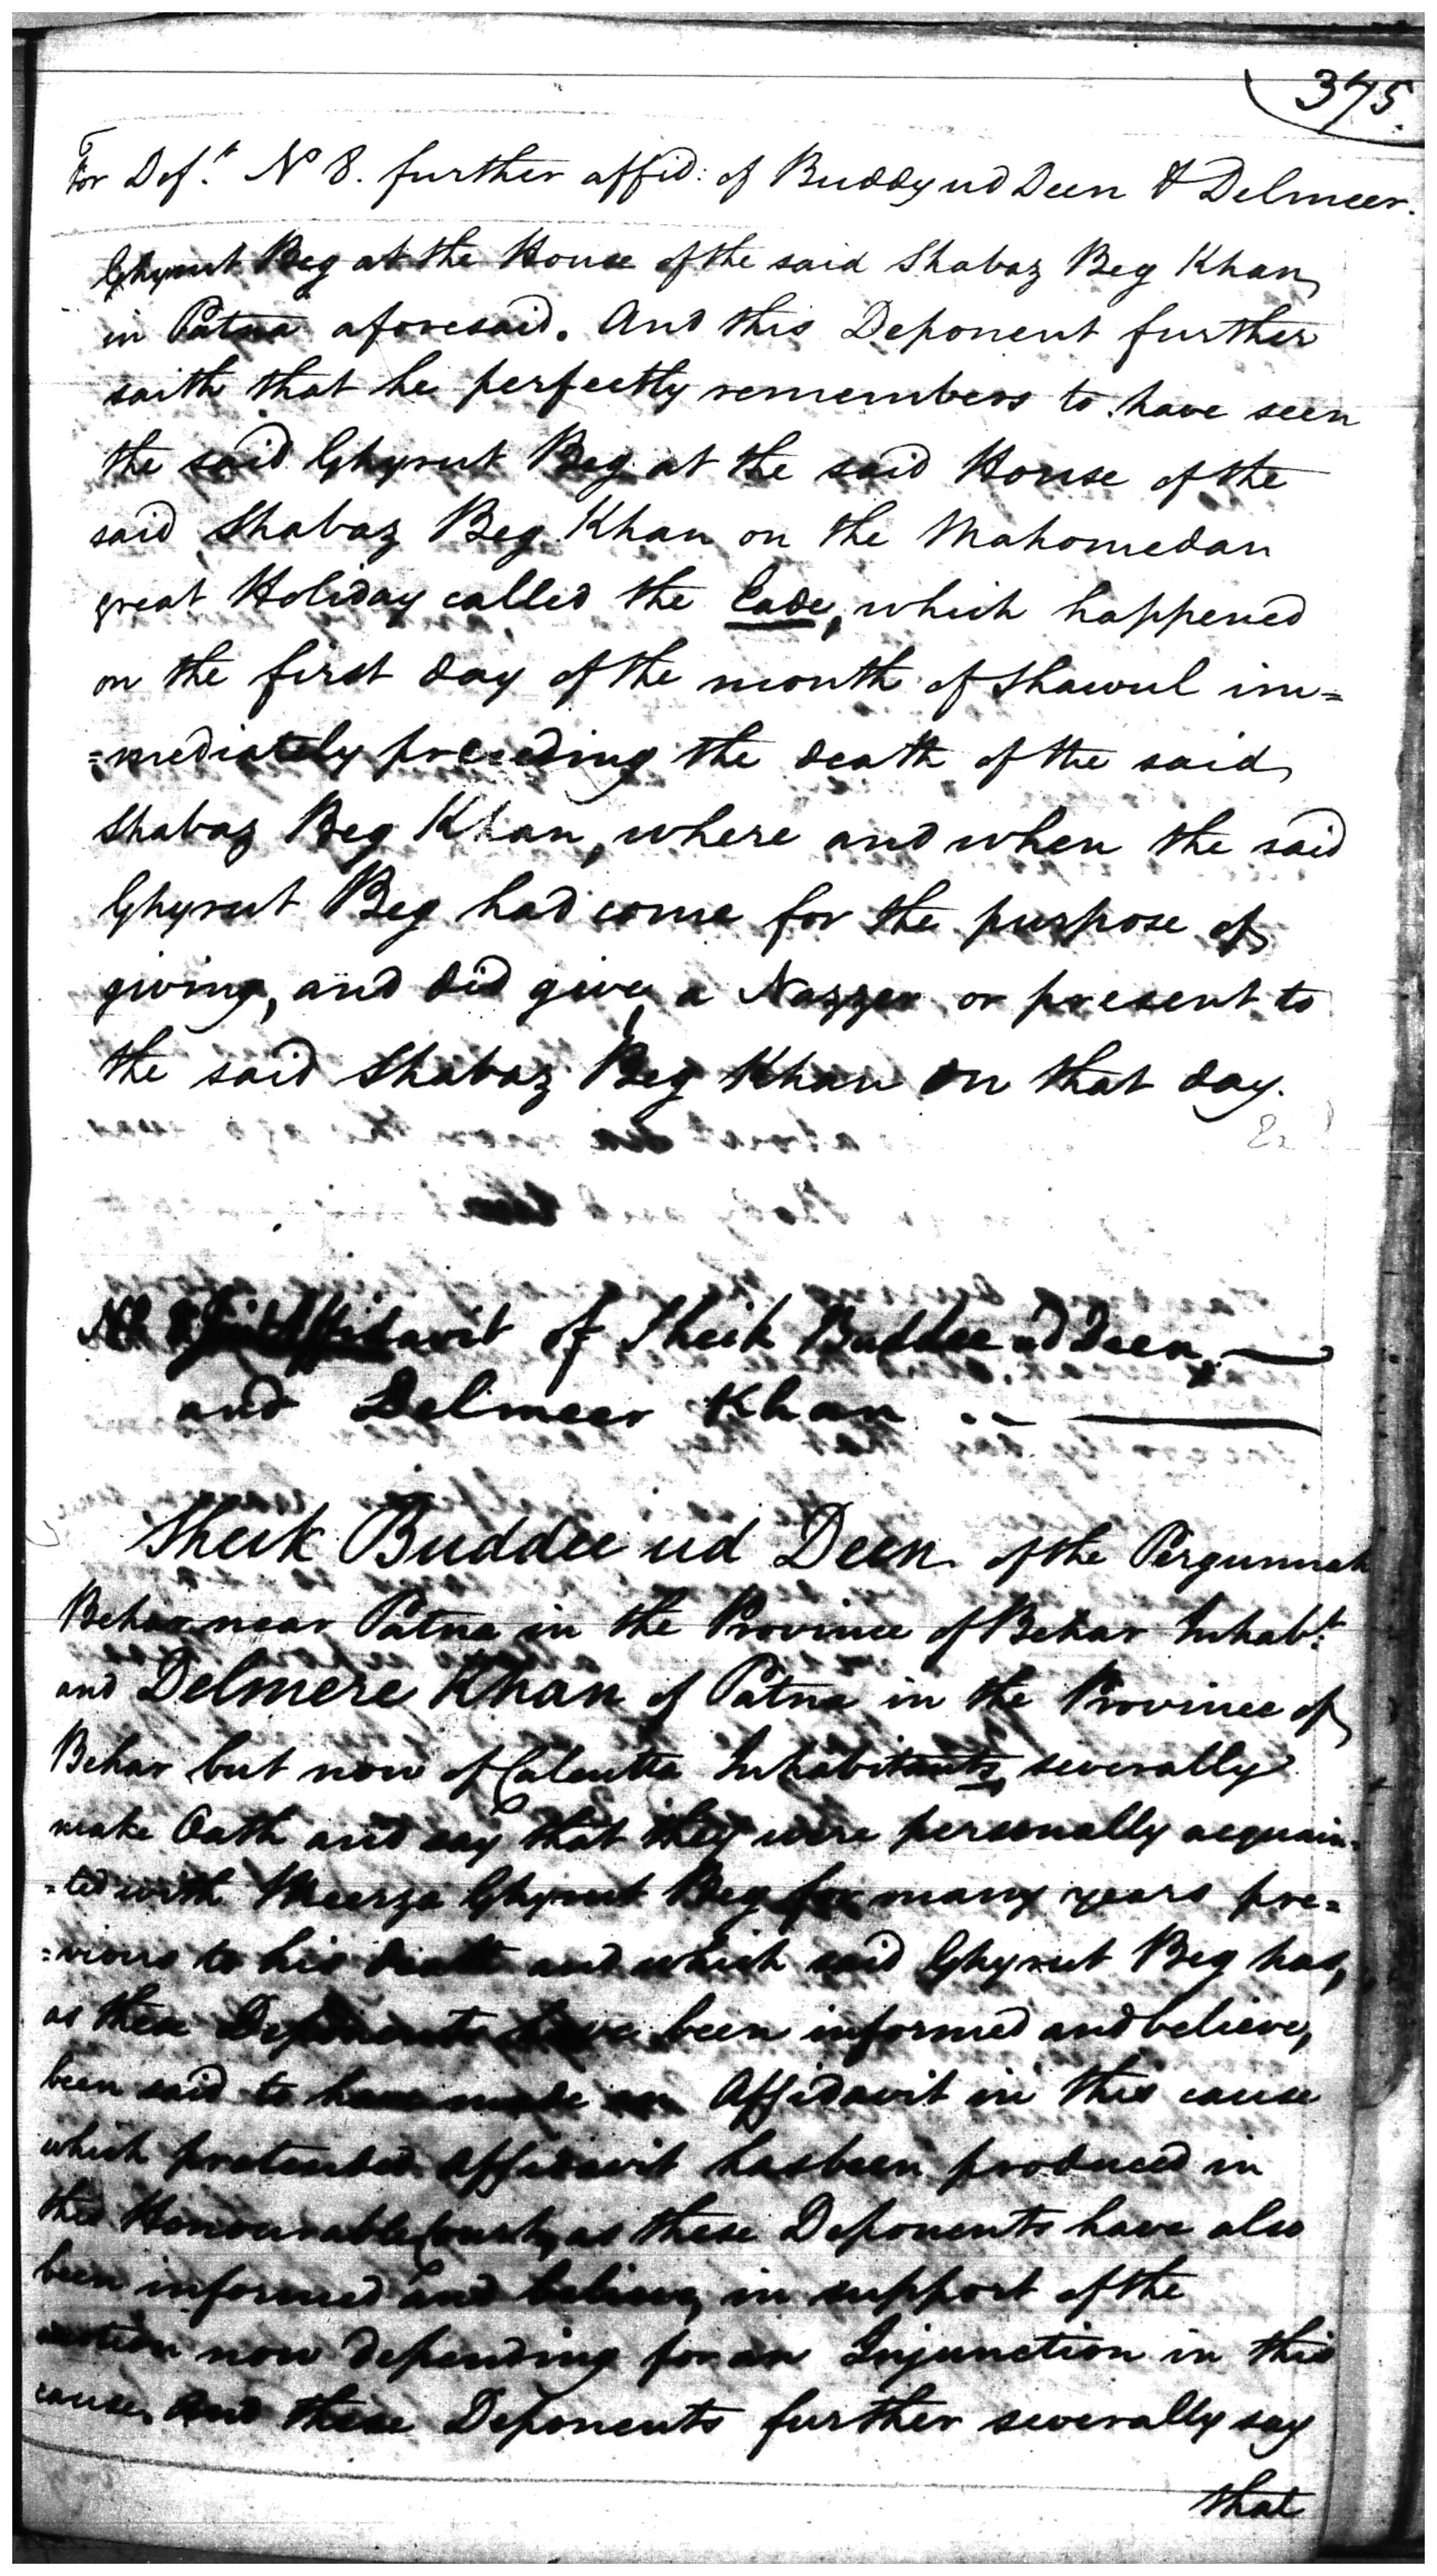 375.
For Def.t No 8. further affid: of Buddy ud Deen & Delmeer.
Ghyrut Beg at the House of the said Shabaz Beg Khan
in Patna aforesaid. And this Deponent further
saith that he perfectly remembers to have seen
the said Ghyrut Beg at the said House of the
said Shabaz Beg Khan on the Mahomedan
great Holiday called the Eade, which happened
on the first day of the month of Shawul im=
=mediately preceeding the death of the said
Shabaz Beg Khan, where and when the said
Ghyrut Beg had come for the purpose of
giving, and did give, a Nazzer or present to
the said Shabaz Beg Khan on that day.
Affidavit of Sheik Buddee ud Deen
and Delmeer Khan
Sheik Buddee ud Deen of the Pergunnah
Behar near Patna in the Province of Behar Inhabt.
and Delmere Khan of Patna in the Province of
Behar but now of Calcutta Inhabitants, severally
make Oath and say that they were personally acquain=
=ted with Meerza Ghyrut Beg for many years pre=
=vious to his death and which said Ghyrut Beg has,
as these Deponents have been informed and believe,
been said to have made an Affidavit in this cause
which pretended Affidavit has been produced in
this Honourable Court, as these Deponents have also
been informed and believe, in support of the
motion now depending for an Injunction in this
cause, And these Deponents further severally say
that